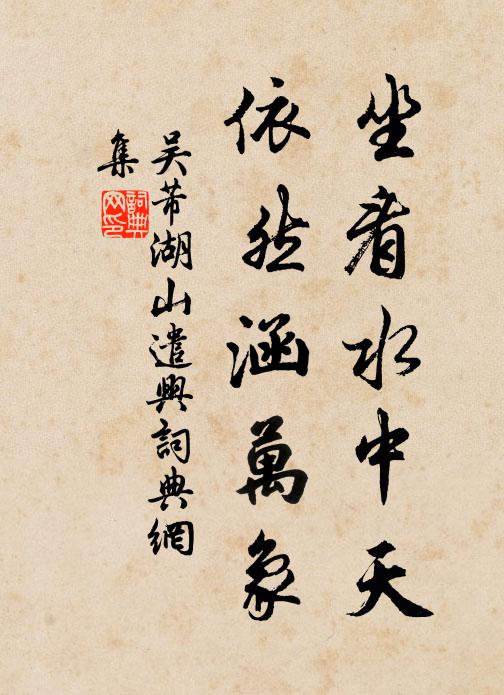 坐看水中天
依然涵萬象
吴芾湖山遣興詞典網
集
詞典网印